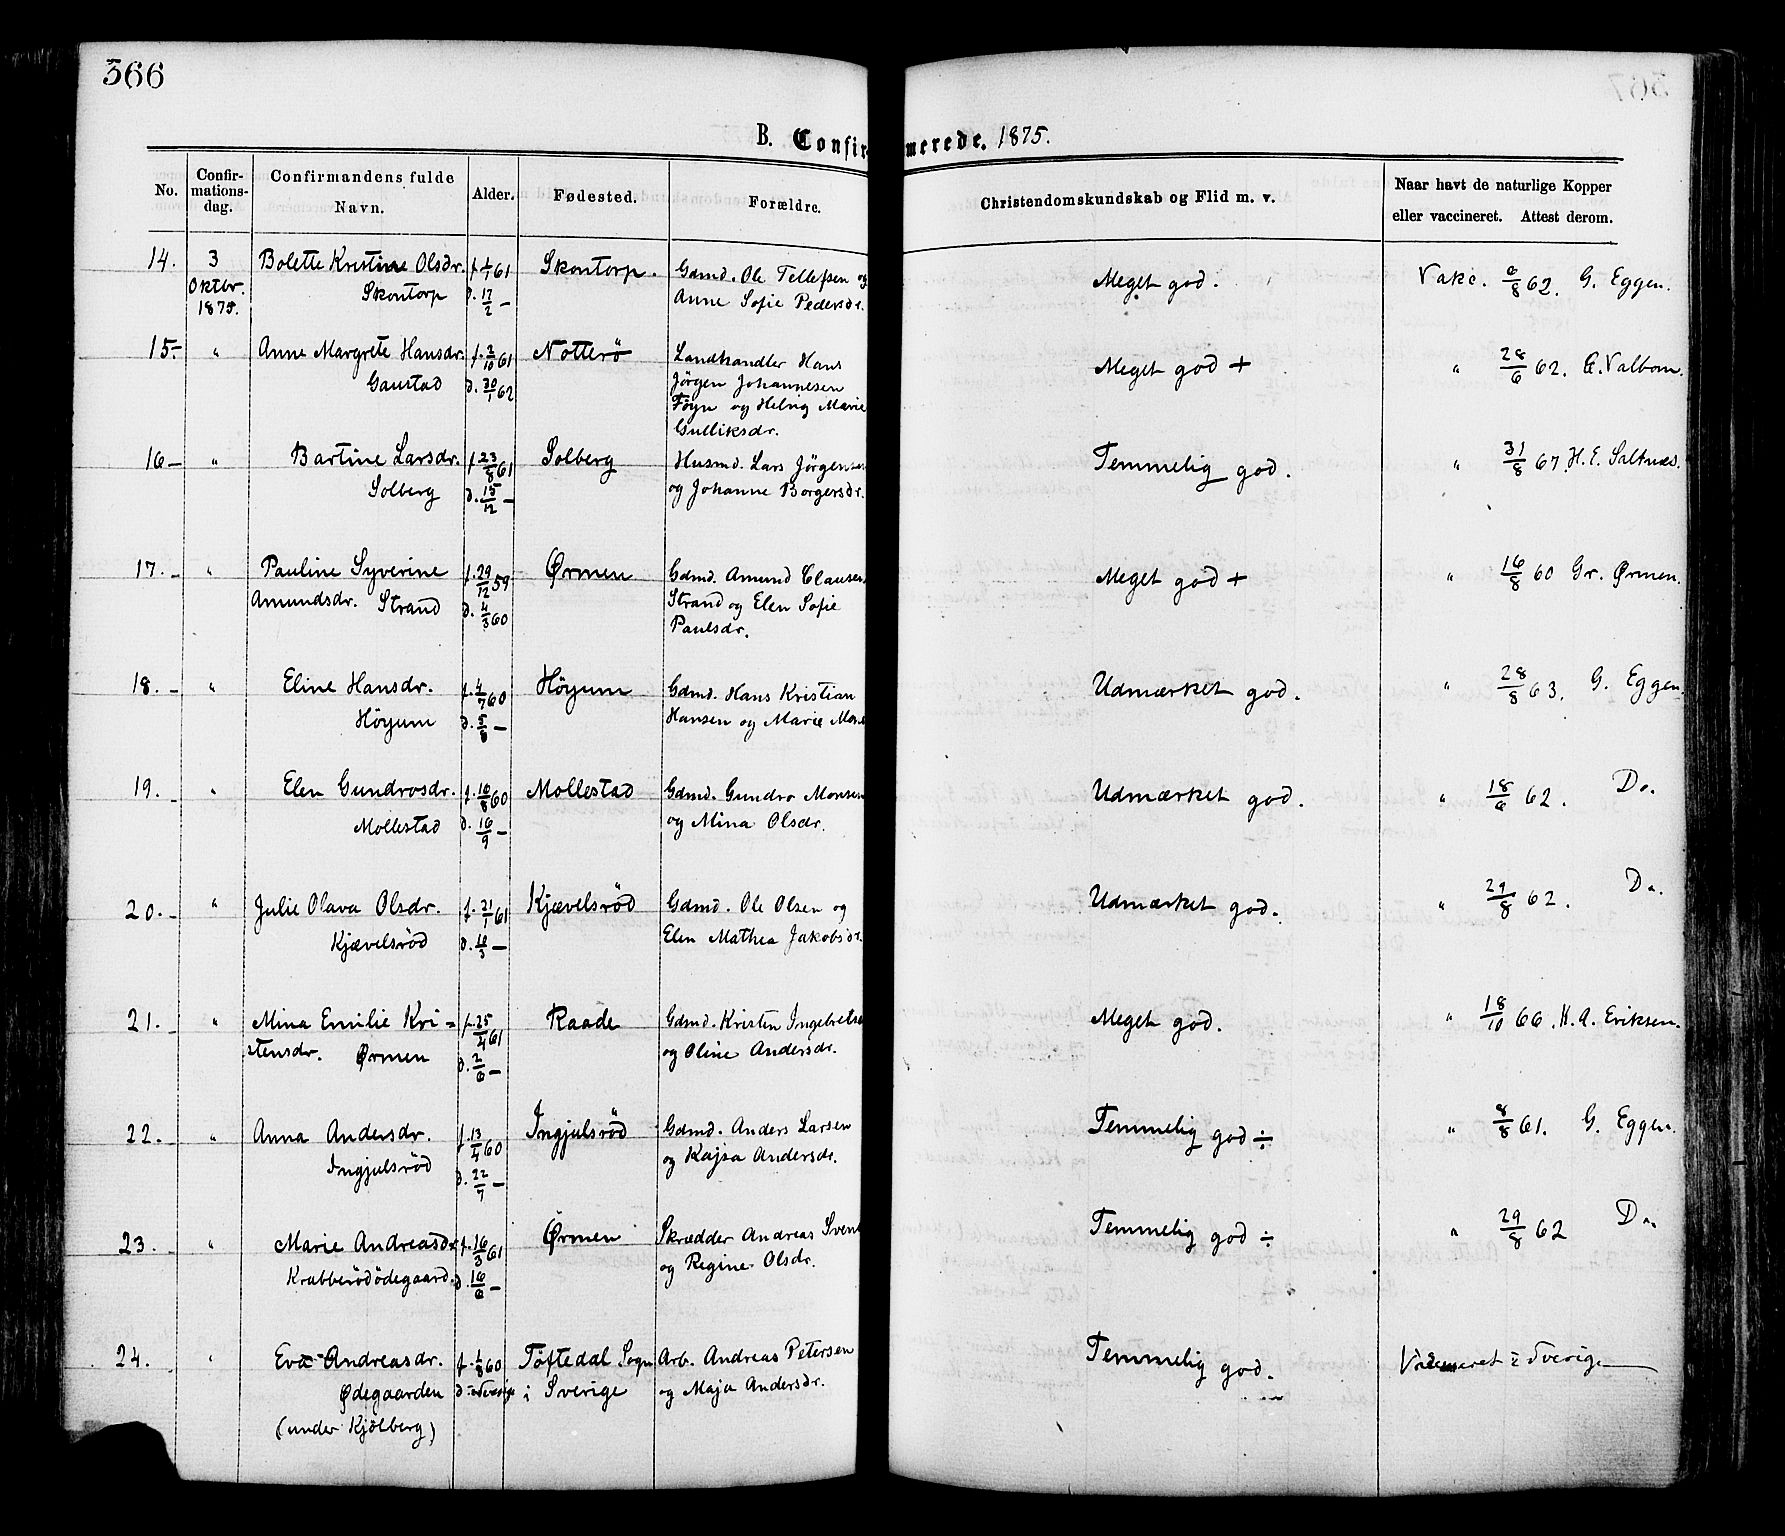 366
B. Confirmerede. 1875.
No.
Confir-
mations-
dag.
Confirmandens fulde
Navn.
Alder.
Fødested.
Forældre.
Christendomskundskab og Flid m. v.
Naar havt de naturlige Kopper
eller vaccineret. Attest derom.
14. 3 Bolette Kristine Olsdr. f. 1/1 61 Skontorp. Gdmd. Ole Tellefsen og Meget god. Vakc. 8/8 62. G. Eggen.
Oktbr. Skontorp d. 17/2 — Anne Sofie Pedersdr.
1875.
15.- " Anne Margrete Hansdr. f. 2/10 61 Notterö Landhandler Hans Meget god + " 28/6 62. E. Valbom.
Gaustad d. 30/1 62 Jörgen Johannesen
Föyn og Helvig Marie
Gulliksdr.
16 — " Bartine Larsdr. f. 23/8 61 Solberg Husmd. Lars Jörgensen Temmelig god. " 31/8 67. H. E. Saltnæs.
Solberg d. 15/12 — og Johanne Borgersdr.
17. - " Pauline Syverine f. 29/12 59 Ørmen Gdmd. Amund Clausen Meget god + " 16/8 60 Gr. Ørmen.
Amundsdr. Strand d. 4/3 60 Strand og Elen Sofie
Paulsdr.
18. - " Eline Hansdr. f. 4/7 60 Höyum Gdmd. Hans Kristian Udmærket god. " 28/8 63. G. Eggen.
Höyum d. 5/8 — Hansen og Marie
19. - " Elen Gundrosdr. f. 10/8 60 Mollestad Gdmd. Gundro Monsen Udmærket god. " 18/6 62. Do.
Mollestad d. 16/9 — og Mina Olsdr.
20. - " Julie Olava Olsdr. f. 21/1 61 Kjævelsröd Gdmd. Ole Olsen og Udmærket god. " 29/8 62. Do.
Kjævelsröd d. 10/3 — Elen Mathea Jakobsdr.
21. - " Mina Emilie Kri= f. 25/4 61 Raade Gdmd. Kristen Ingebretsen Meget god. " 18/10 66. H. A. Eriksen.
stensdr. Ørmen d. 2/6 — og Oline Andersdr.
22. - " Anna Andersdr. f. 13/4 60 Ingjulsröd Gdmd. Anders Larsen Temmelig god ÷ " 8/8 61. G. Eggen.
Ingjulsröd d. 22/7 — og Kajsa Andersdr.
23. " Marie Andreasdr. f. 16/3 61 Ørmen Skrædder Andreas Svens Temmelig god ÷ " 29/8 62 Do.
Krabberödödegaard. d. 16/6 — og Regine Olsdr.
24. " Eva Andreasdr. f. 1/8 60 Töftedal Sogn Arb. Andreas Petersen Temmelig god. i Sverige
Ødegaarden i Sverige og Maja Andersdr.
(under Kjölberg)